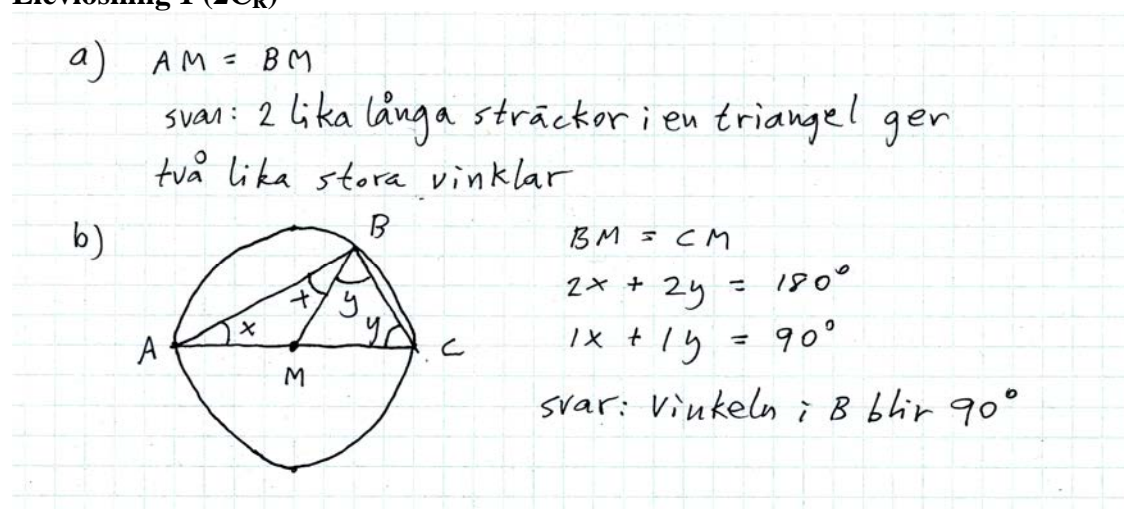 Elevlösning 1 (2C_R)
a) AM = BM
svar: 2 lika långa sträckor i en triangel ger
två lika stora vinklar
b)
B
x
y
x
y
A
C
M
BM = CM
2x + 2y = 180°
1x + 1y = 90°
svar: Vinkeln i B blir 90°